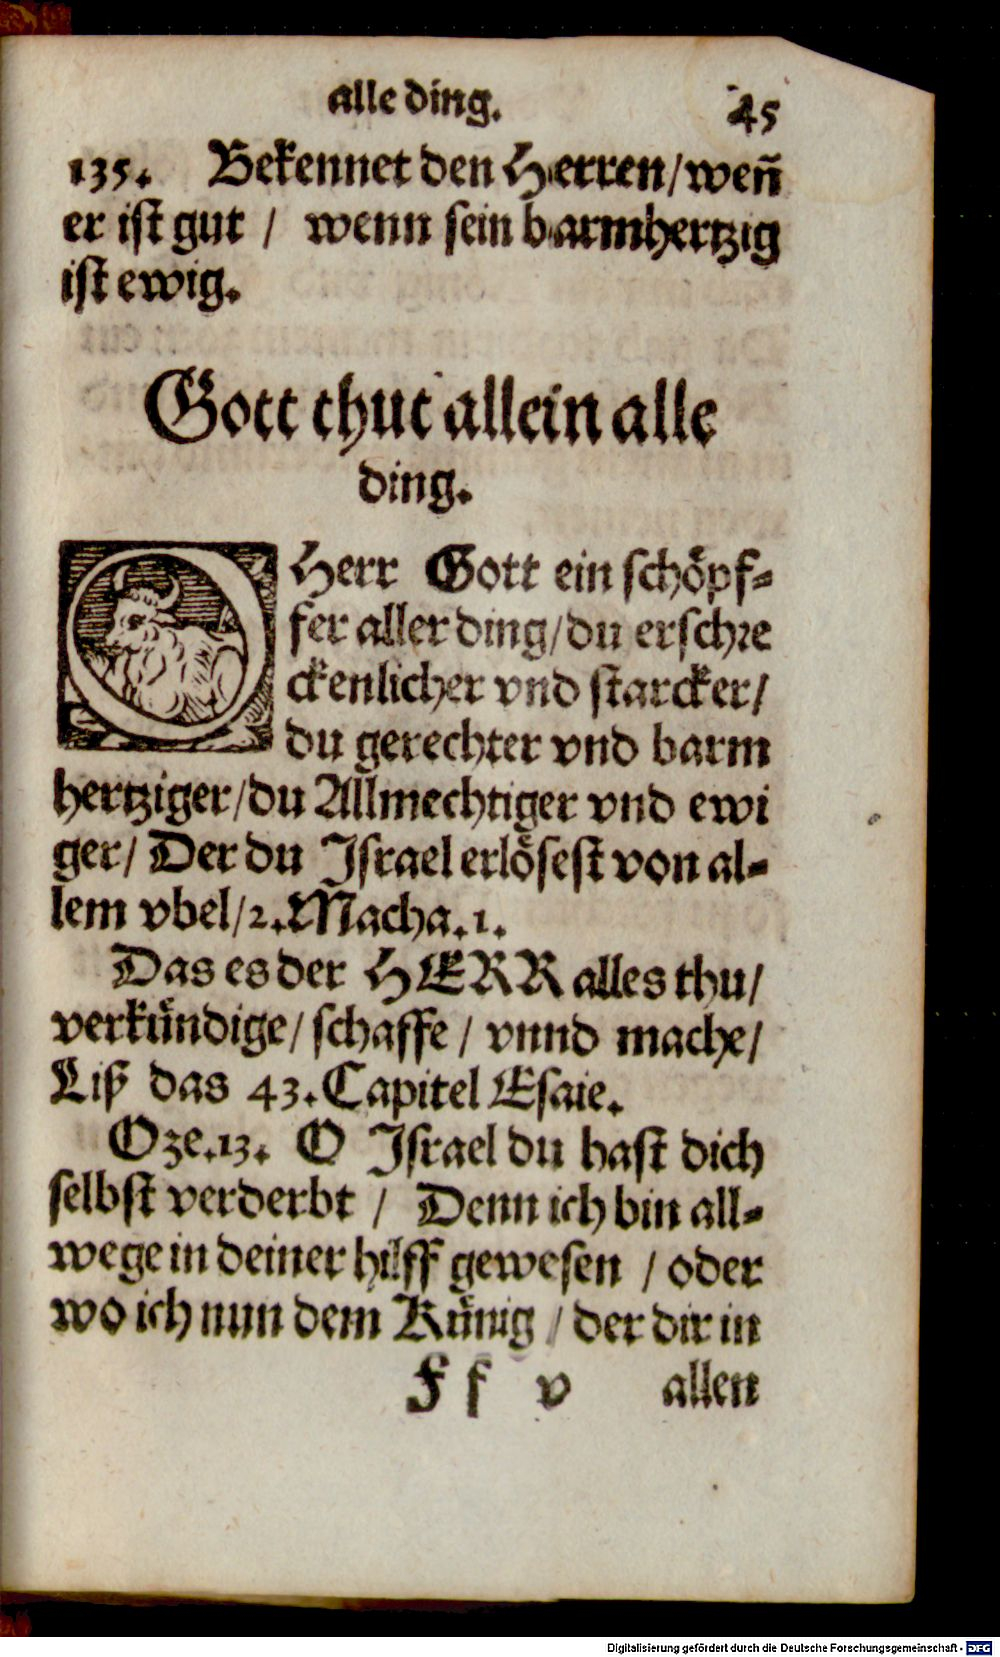 alle ding. 45
135. Bekennet den Herren/ wen̄
er ist gut / wenn sein barmhertzig
ist ewig.
Gott thut allein alle
ding.
O Herr Gott ein schöpf-
fer aller ding/ du erschre
ckenlicher vnd starcker/
du gerechter vnd barm
hertziger/ du Allmechtiger vnd ewi
ger/ Der du Israel erlösest von al-
lem vbel/ 2. Macha. 1.
Das es der HERR alles thu/
verkündige/ schaffe / vnnd mache/
Liß das 43. Capitel Esaie.
Oze. 13. O Israel du hast dich
selbst verderbt / Denn ich bin all-
wege in deiner hilff gewesen / oder
wo ich nun dem Künig / der dir in
F f v allen
Digitalisierung gefördert durch die Deutsche Forschungsgemeinschaft - DFG